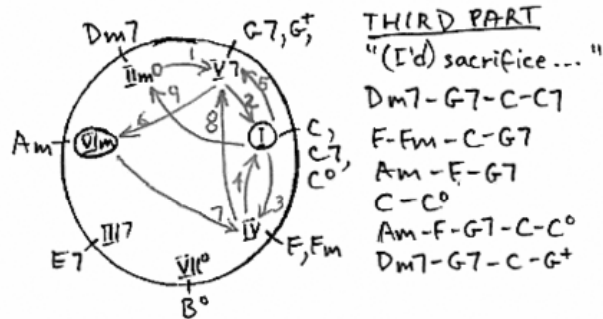 Dm7
G7, G+
IIm
V7
1
9
2
5
Am
VIm
6
8
I
C,
C7,
C°
4
3
7
IV
F, Fm
III7
E7
VII°
B°
THIRD PART
"(I'd) sacrifice..."
Dm7-G7-C-C7
F-Fm-C-G7
Am-F-G7
C-C°
Am-F-G7-C-C°
Dm7-G7-C-G+